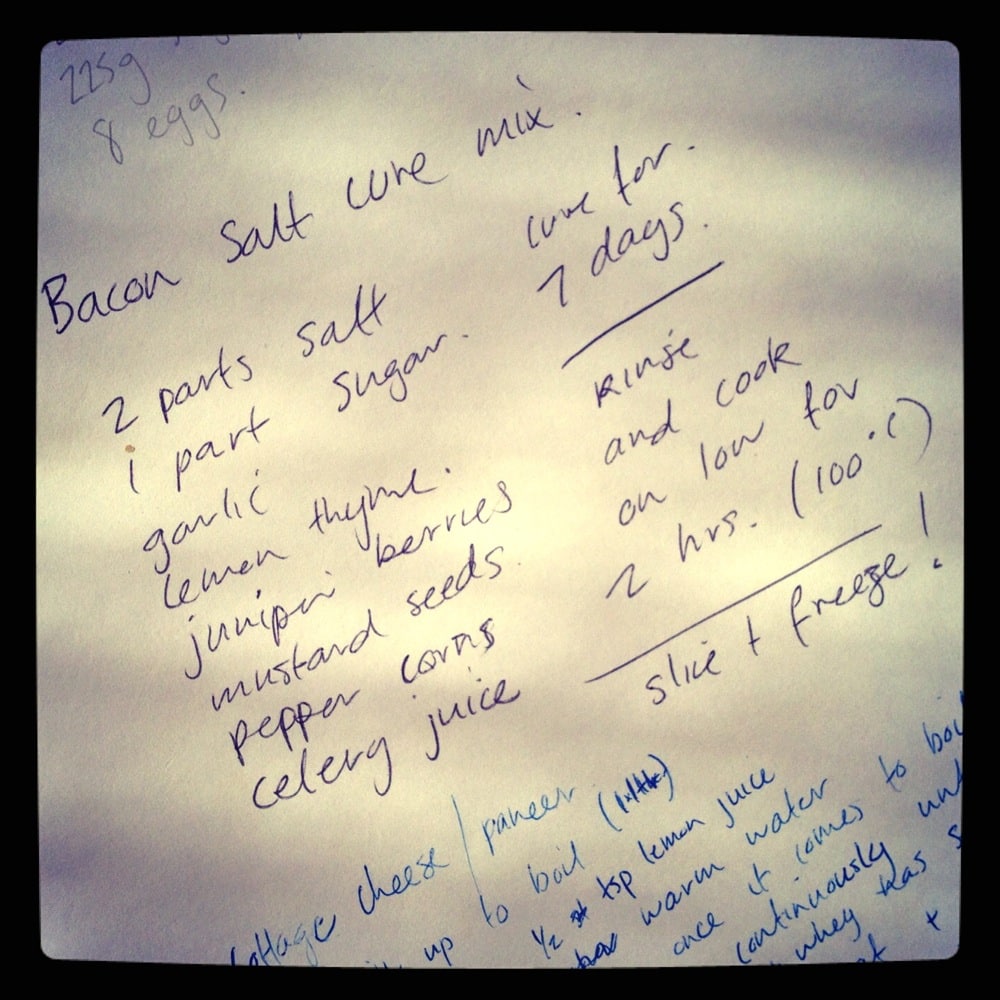 225g
8 eggs.
Bacon Salt cure mix.
2 parts salt
1 part sugar.
garlic
lemon thyme
juniper berries
mustard seeds.
pepper corns
celery juice
cure for.
7 days.
Rinse
and cook
on low for
2 hrs. (100°C)
slice + freeze!
cottage cheese / paneer
up to boil
1/2 tsp lemon juice
warm water
once it comes to boil
continuously
whey has
+